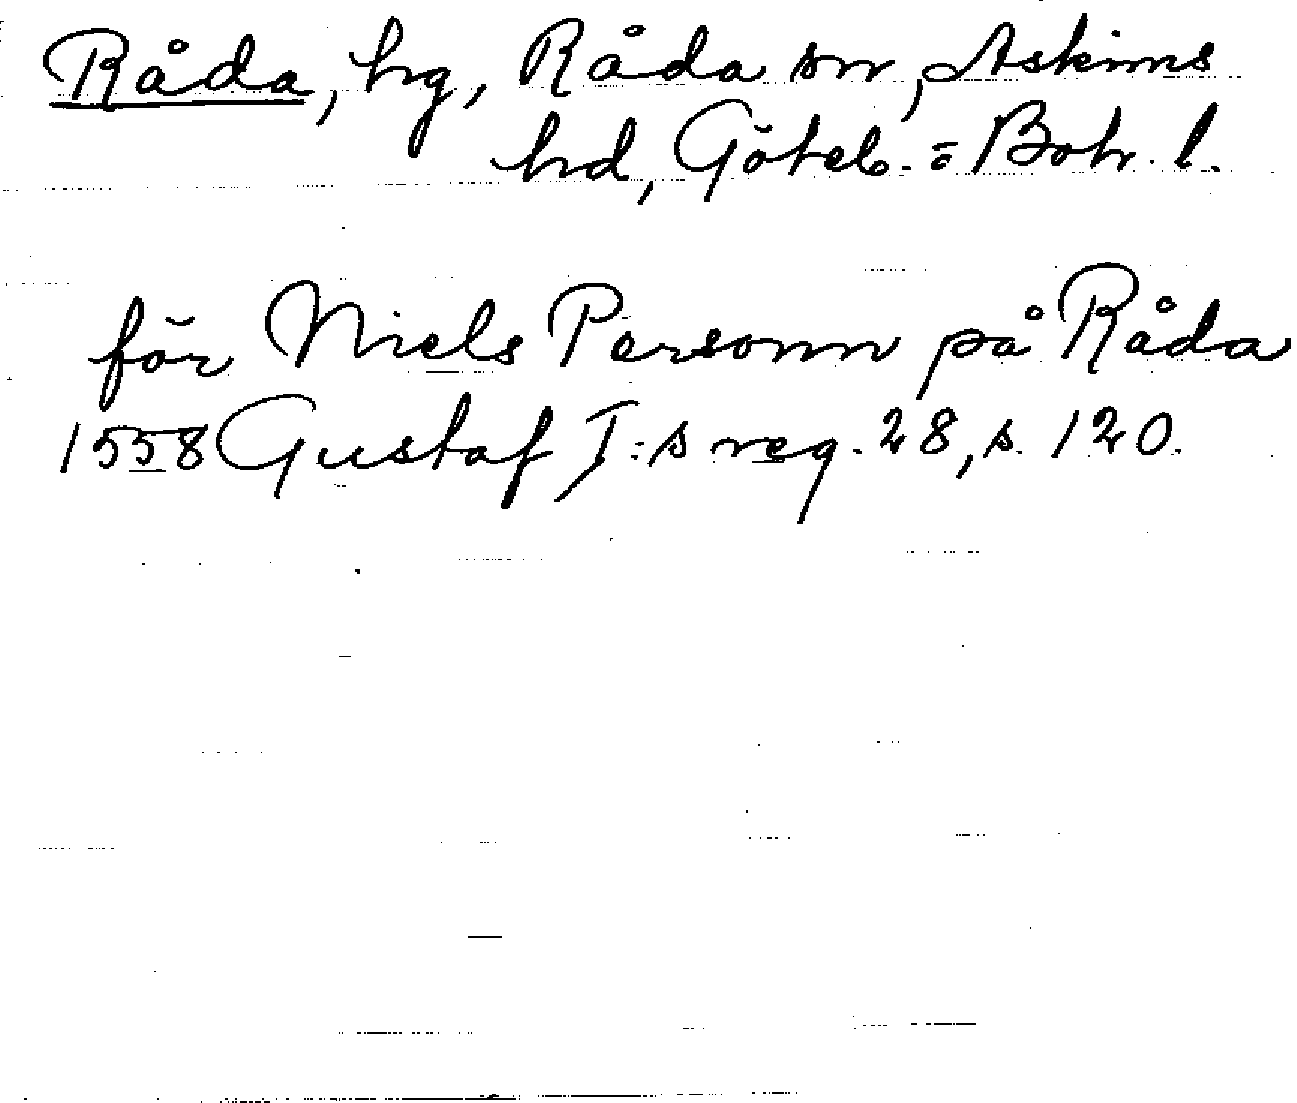 Råda, hg, Råda sn, Askims
hd, Göteb. o Boh. l.
för Niels Personn på Råda
1558 Gustaf I:s reg. 28, s. 120.